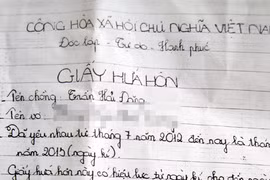 CỘNG HÒA XÃ HỘI CHỦ NGHĨA VIỆT NAM
Độc lập - Tự do - Hạnh phúc
GIẤY HỨA HÔN
Tên chồng: Trần Hải Đăng
Tên vợ:
Đã yêu nhau từ tháng 7 năm 2012 đến nay là tháng
năm 2015 (ngày kí).
Giấy hứa hôn này có hiệu lực từ ngày kí cho đến ngày